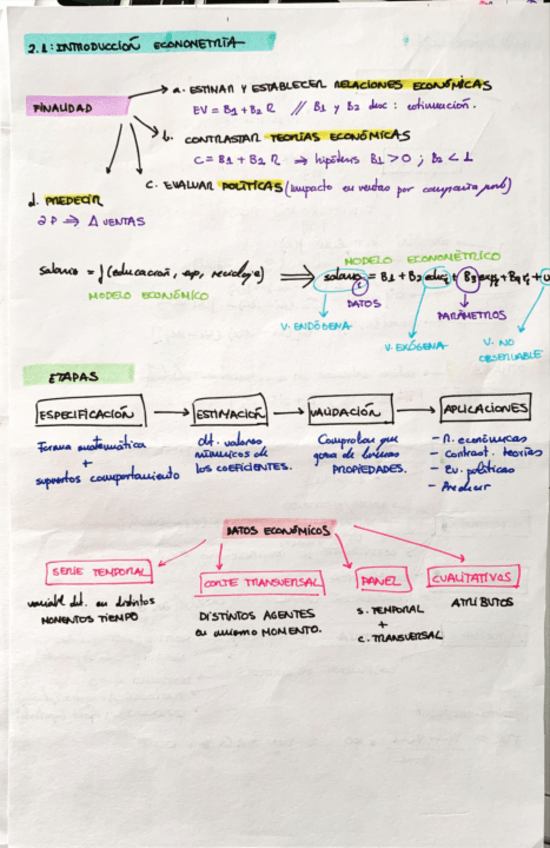 2.1: INTRODUCCIÓN ECONOMETRÍA
FINALIDAD
a. ESTIMAR Y ESTABLECER RELACIONES ECONÓMICAS
EV = B1 + B2 R // B1 y B2 desc : estimación.
b. CONTRASTAR TEORÍAS ECONÓMICAS
C = B1 + B2 R ⇒ hipótesis B1 > 0 ; B2 < 1
c. EVALUAR POLÍTICAS (impacto en ventas por campaña pub)
d. PREDECIR
∂P ⇒ Δ VENTAS
MODELO ECONOMÉTRICO
Salario = f (educación, exp, )
⇒ salario = B1 + B2 educi + B3 expi + B4 ri + u
MODELO ECONÓMICO
DATOS
PARÁMETROS
V. ENDÓGENA
V. EXÓGENA
V. NO OBSERVABLE
ETAPAS
ESPECIFICACIÓN → ESTIMACIÓN → VALIDACIÓN → APLICACIONES
Forma matemática
+
supuestos comportamiento
dt. valores
numéricos de
los COEFICIENTES.
Comprobar que
goza de buenas
PROPIEDADES.
- R. económicas
- Contrast. teorías
- Ev. políticas
- Predecir
DATOS ECONÓMICOS
SERIE TEMPORAL
CORTE TRANSVERSAL
PANEL
CUALITATIVOS
variable dt. en distintos
MOMENTOS TIEMPO
DISTINTOS AGENTES
en mismo MOMENTO.
S. TEMPORAL
+
C. TRANSVERSAL
ATRIBUTOS